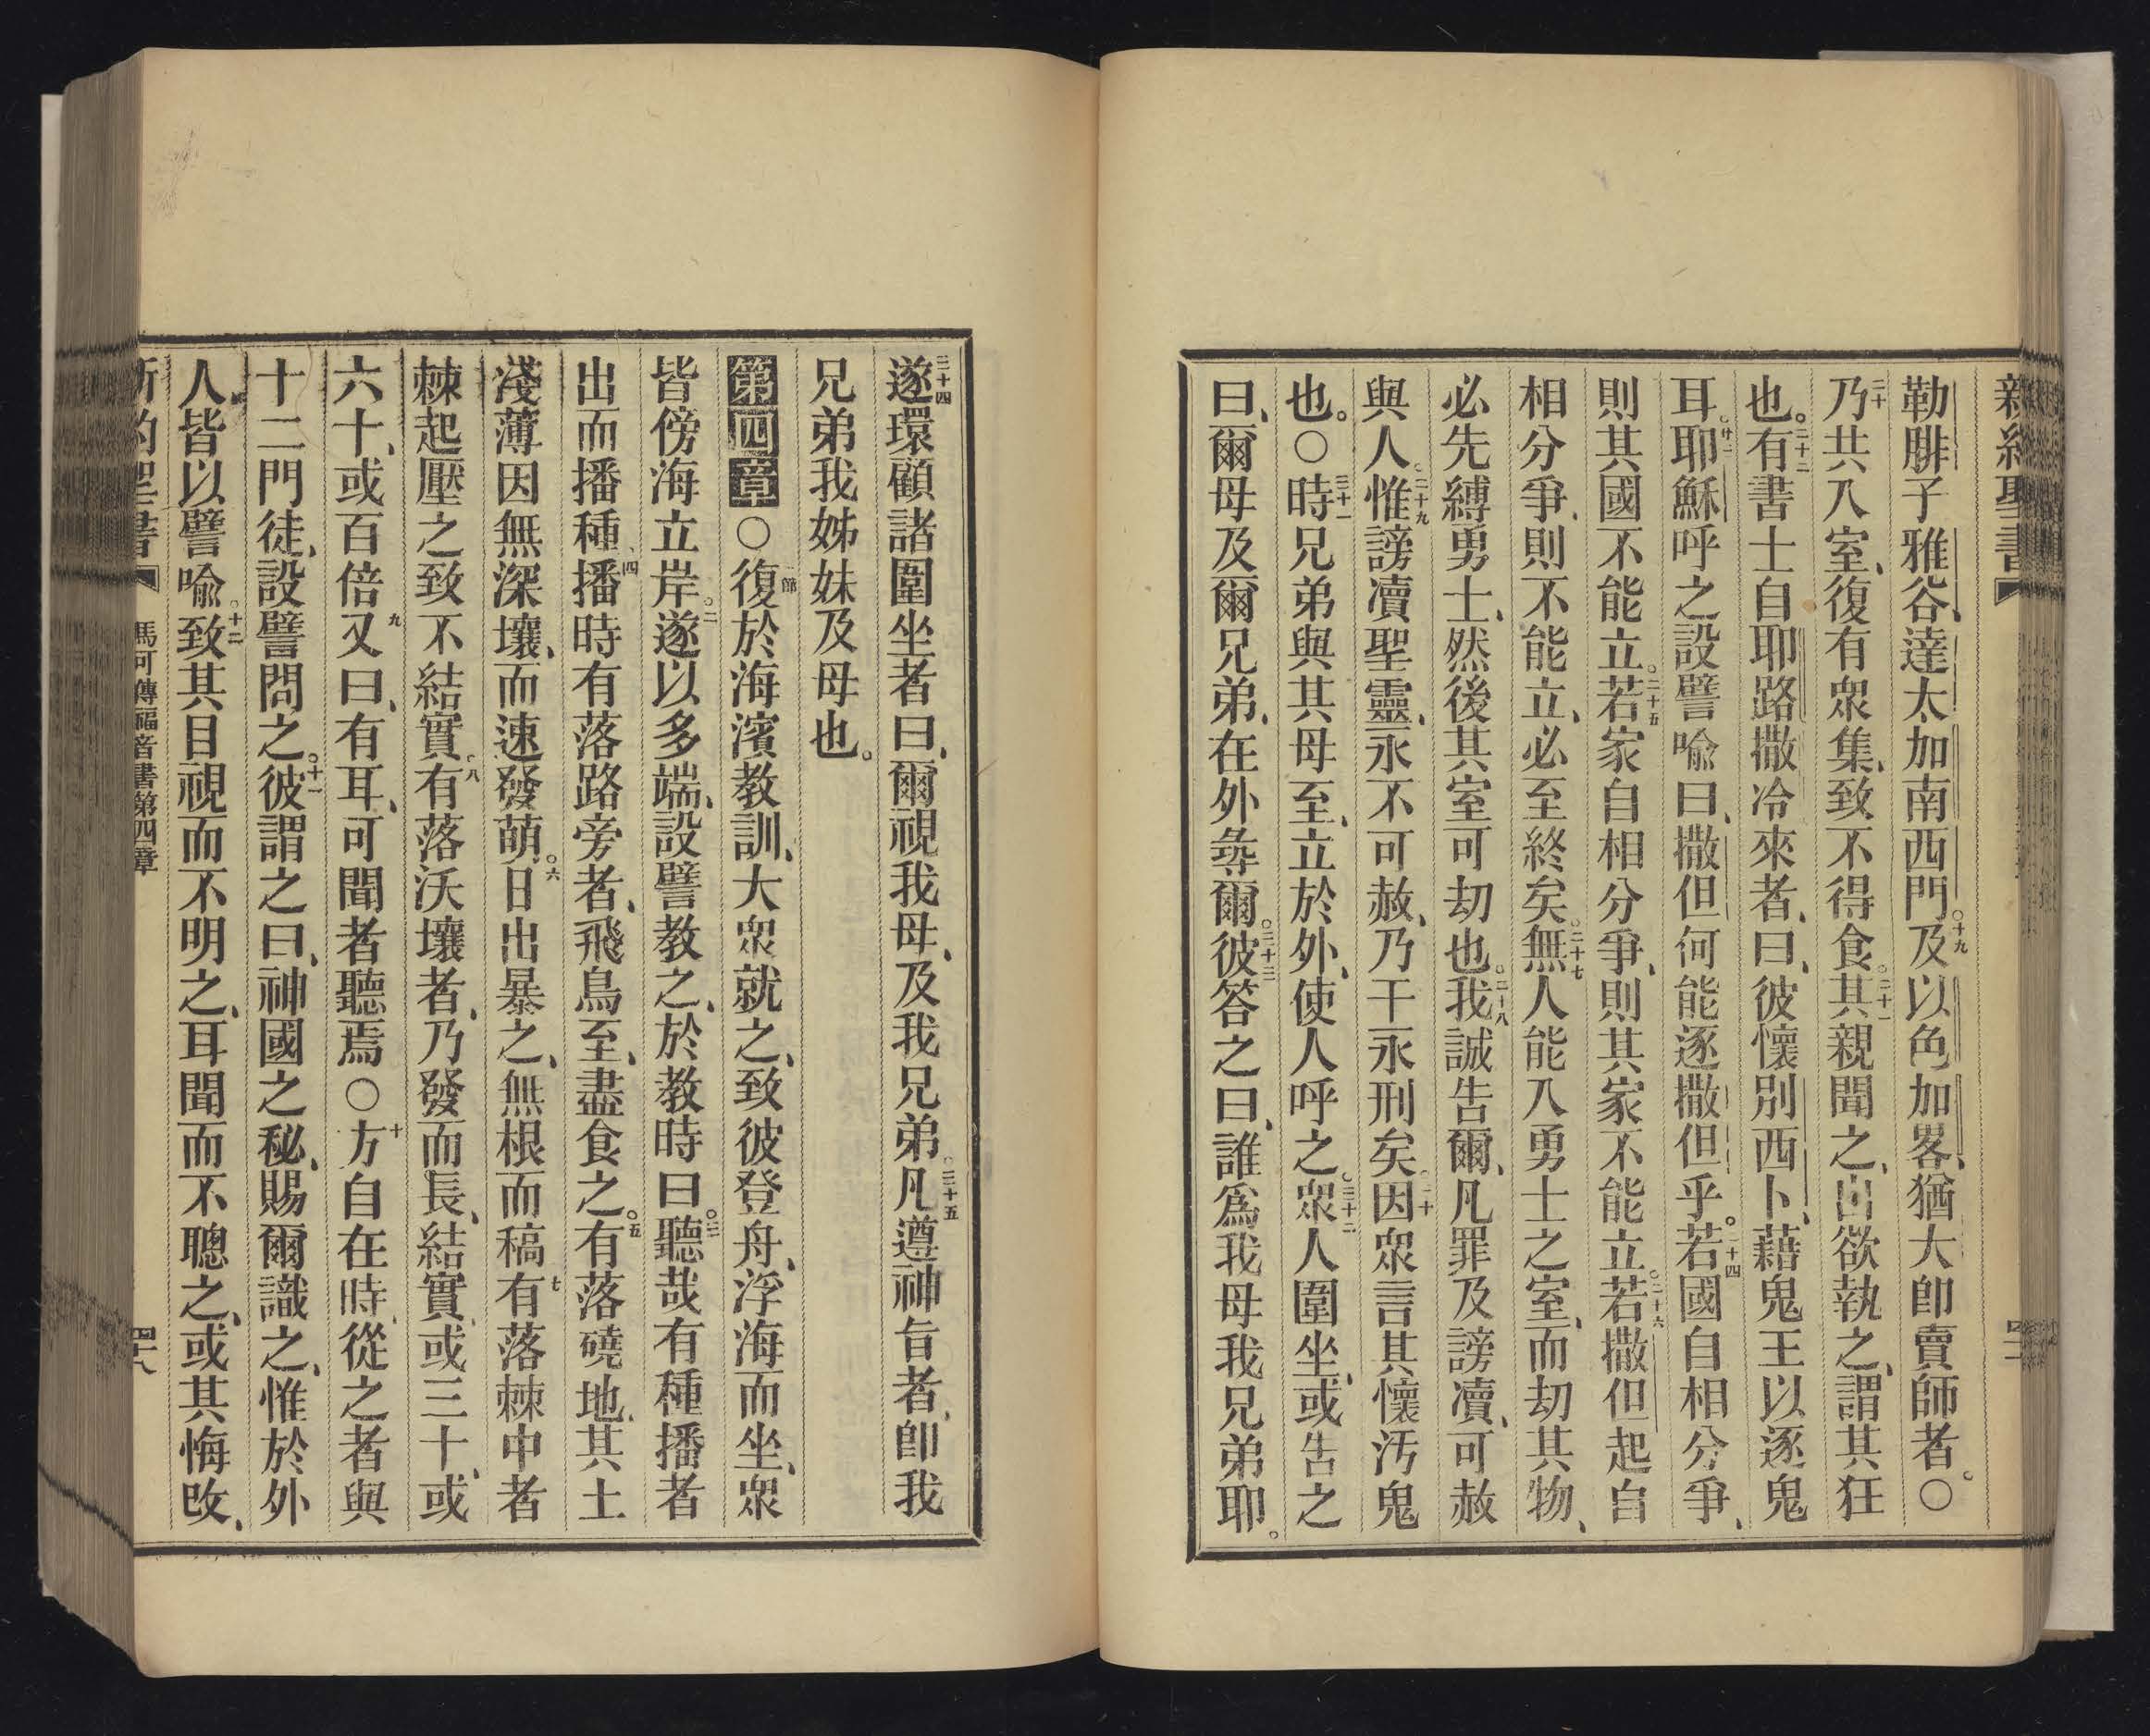 新約聖書
勒腓子雅谷、達太、加南西門。十九及以色加畧、猶大卽賣師者。○
二十乃共入室、復有衆集、致不得食。二十一其親聞之、出欲執之、謂其狂
也。二十二有書士自耶路撒冷來者、曰、彼懷別西卜、藉鬼王以逐鬼
耳。廿三耶穌呼之設譬喻曰、撒但何能逐撒但乎。二十四若國自相分爭、
則其國不能立。二十五若家自相分爭、則其家不能立。二十六若撒但起自
相分爭、則不能立、必至終矣。二十七無人能入勇士之室、而刧其物、
必先縛勇士、然後其室可刧也。二十八我誠告爾、凡罪及謗瀆、可赦
與人。二十九惟謗瀆聖靈、永不可赦、乃干永刑矣。三十因衆言其懷汚鬼
也。○三十一時兄弟與其母至、立於外、使人呼之。三十二衆人圍坐、或告之
曰、爾母及爾兄弟、在外尋爾。三十三彼答之曰、誰爲我母我兄弟耶。
三十四遂環顧諸圍坐者曰、爾視我母、及我兄弟。三十五凡遵神旨者、卽我
兄弟我姊妹及母也。
第四章○一節復於海濱教訓、大衆就之、致彼登舟、浮海而坐、衆
皆傍海立岸。二遂以多端、設譬教之、於教時曰。三聽哉有種播者
出而播種、四播時有落路旁者、飛鳥至、盡食之。五有落磽地、其土
淺薄因無深壤、而速發萌。六日出暴之、無根而稿七有落棘中者
棘起壓之致不結實。八有落沃壤者、乃發而長、結實、或三十、或
六十、或百倍九又曰、有耳、可聞者聽焉○十方自在時、從之者與
十二門徒、設譬問之。十一彼謂之曰、神國之秘、賜爾識之、惟於外
人、皆以譬喻。十二致其目視而不明之、耳聞而不聰之、或其悔改、
新約聖書 馬可傳福音書第四章 四十八